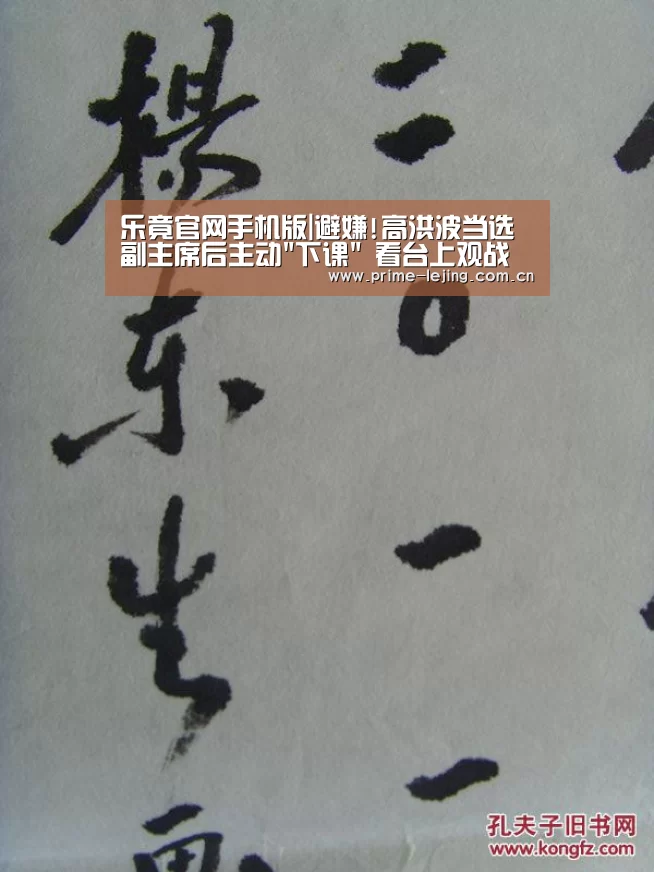 二〇一一
楊东生画
乐竟官网手机版|避嫌!高洪波当选
副主席后主动"下课" 看台上观战
www.prime-lejing.com.cn
孔夫子旧书网
www.kongfz.com